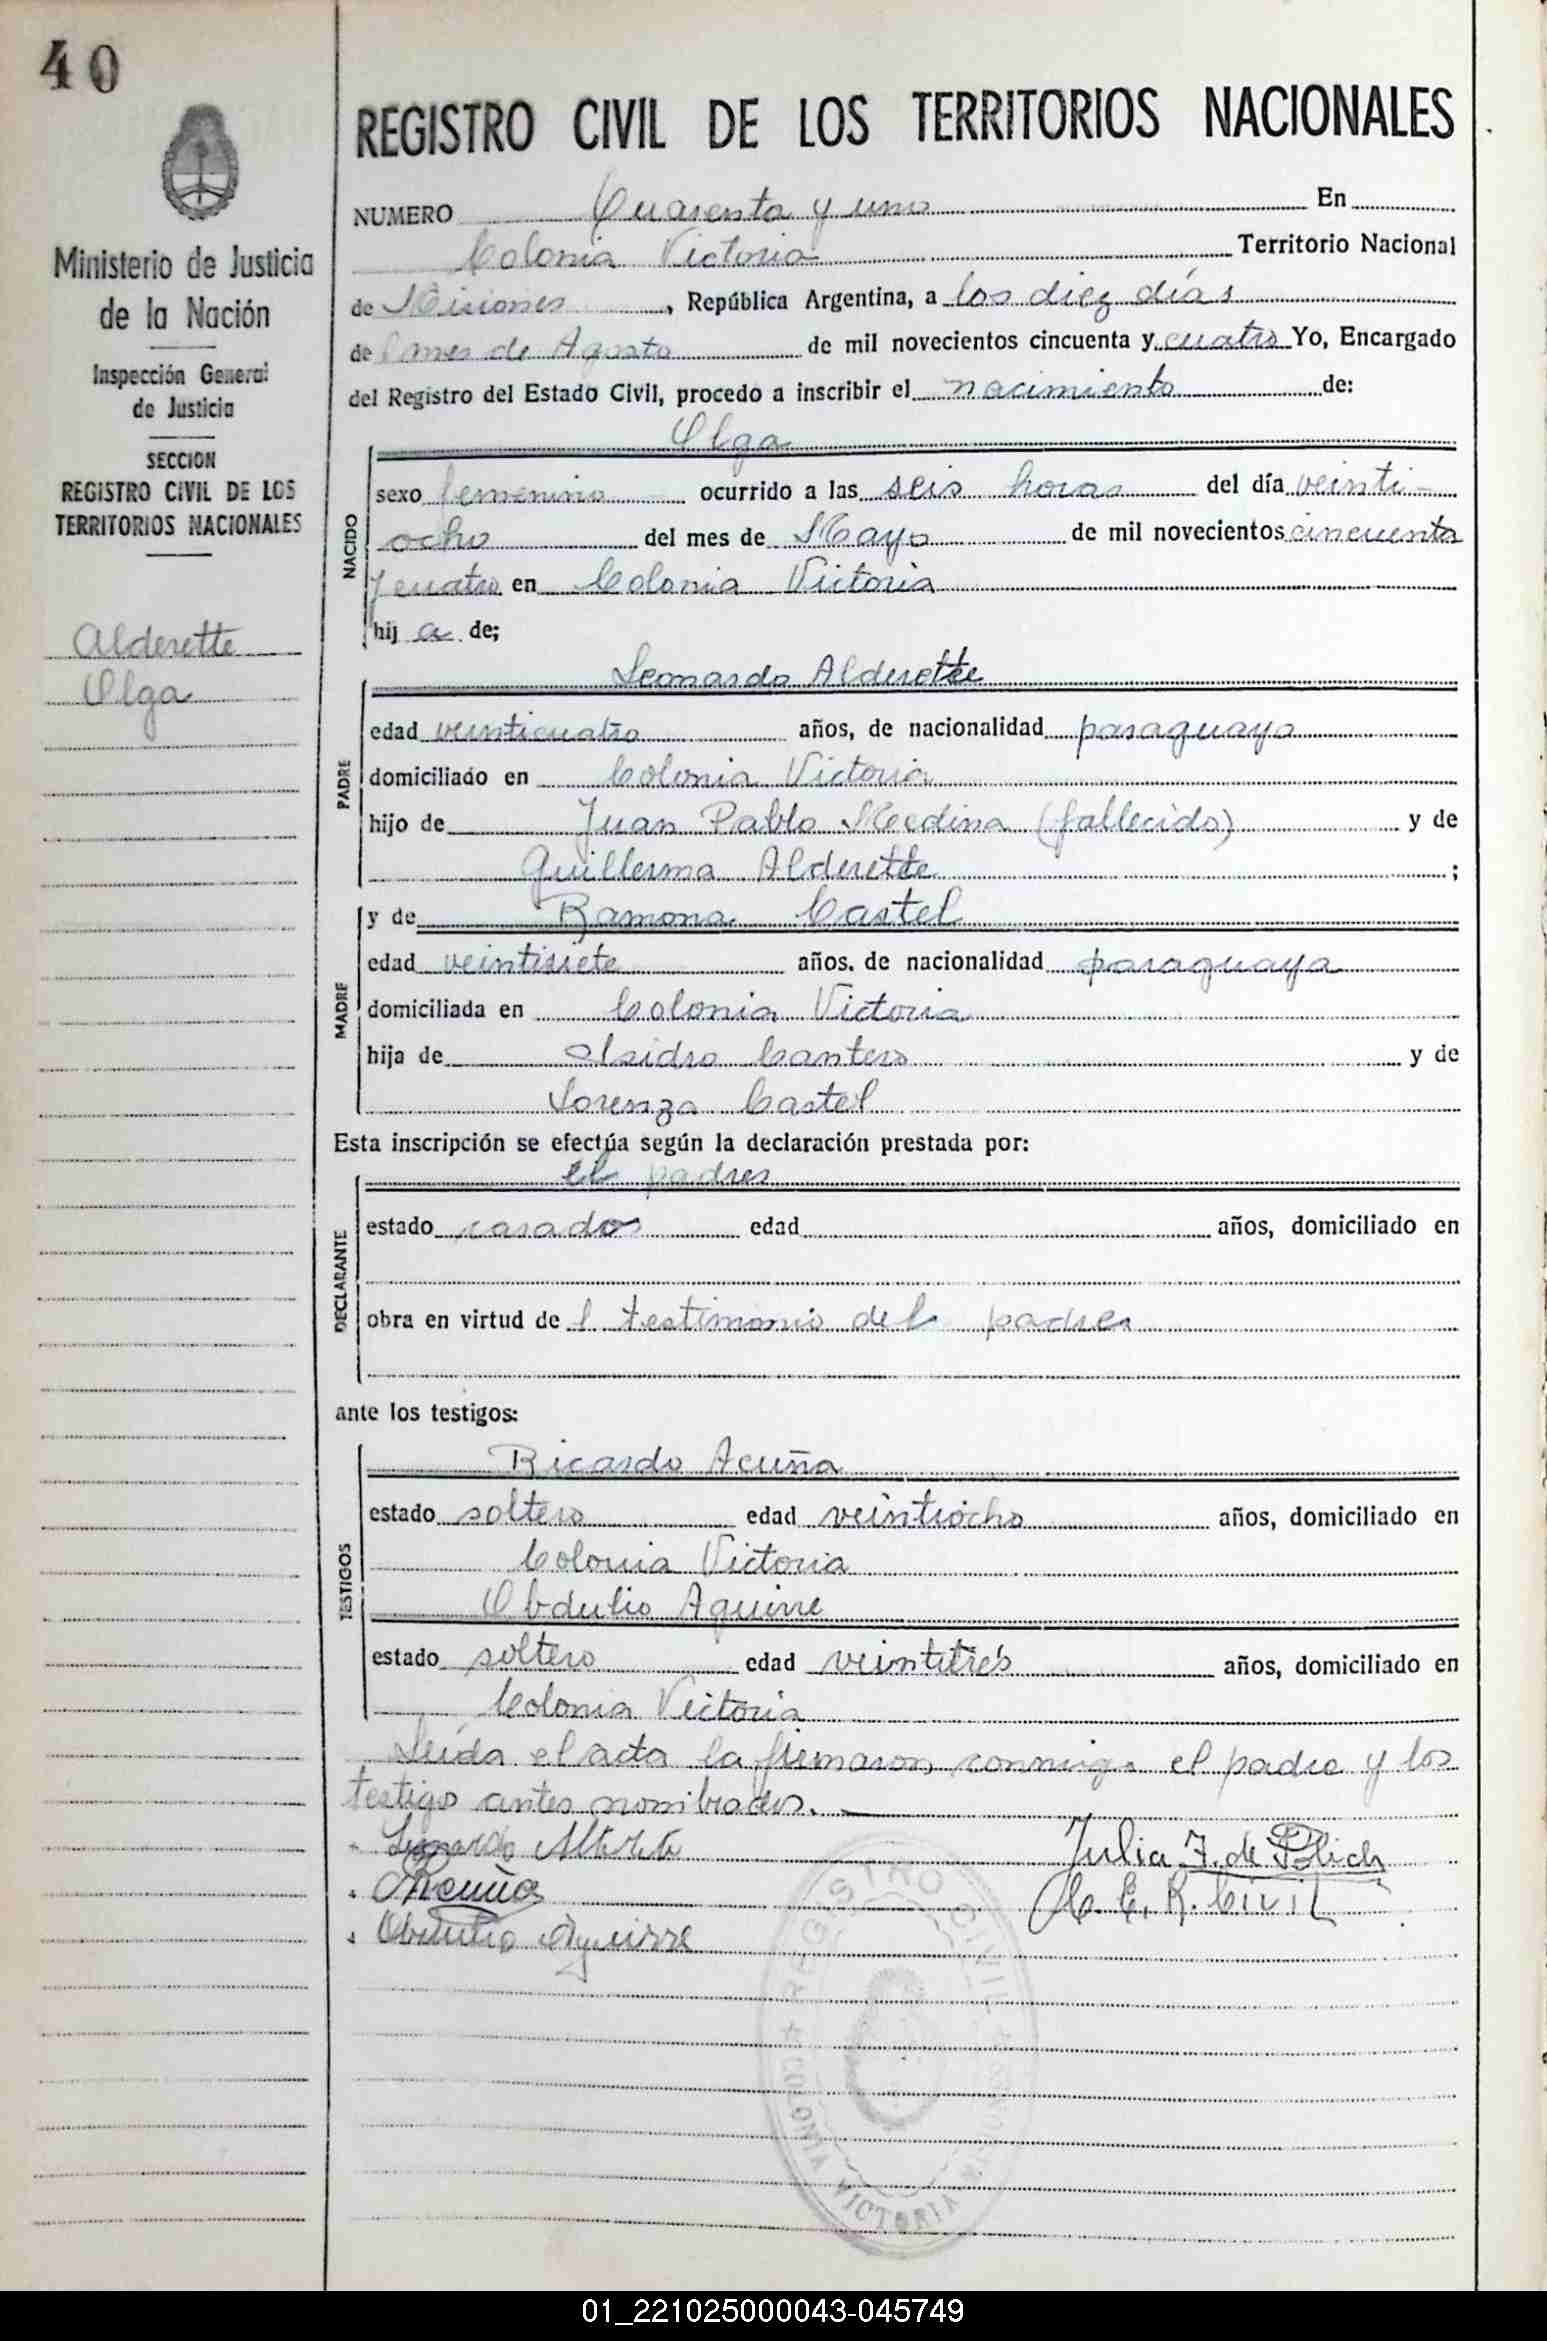 40
Ministerio de Justicia
de la Nación
Inspección General
de Justicia
SECCION
REGISTRO CIVIL DE LOS
TERRITORIOS NACIONALES
Alderette
Olga
REGISTRO CIVIL DE LOS TERRITORIOS NACIONALES
NUMERO Cuarenta y uno En
Colonia Victoria Territorio Nacional
de Misiones, República Argentina, a los diez días
del mes de Agosto de mil novecientos cincuenta y cuatro Yo, Encargado
del Registro del Estado Civil, procedo a inscribir el nacimiento de:
Olga
NACIDO
sexo femenino ocurrido a las seis horas del día veinti-
ocho del mes de Mayo de mil novecientos cincuenta
y cuatro en Colonia Victoria
hij a de;
Leonardo Alderette
PADRE
edad veinticuatro años, de nacionalidad paraguaya
domiciliado en Colonia Victoria
hijo de Juan Pablo Medina (fallecido) y de
Guillerma Alderette ;
y de Ramona Castel
MADRE
edad veintisiete años. de nacionalidad paraguaya
domiciliada en Colonia Victoria
hija de Isidro Cantero y de
Lorenza Castel
Esta inscripción se efectúa según la declaración prestada por:
el padres
DECLARANTE
estado casados edad años, domiciliado en
obra en virtud de l testimonio del padres
ante los testigos:
Ricardo Acuña
TESTIGOS
estado soltero edad veintiocho años, domiciliado en
Colonia Victoria
Obdulio Aguirre
estado soltero edad veintitrés años, domiciliado en
Colonia Victoria
Leída el acta la firmaron conmigo el padre y los
testigo antes nombrados.
Leonardo Alderete
RAcuña
Obdulio Aguirre
Julia F. de Polich
E. R. Civil
REGISTRO CIVIL
COLONIA VICTORIA
01_221025000043-045749